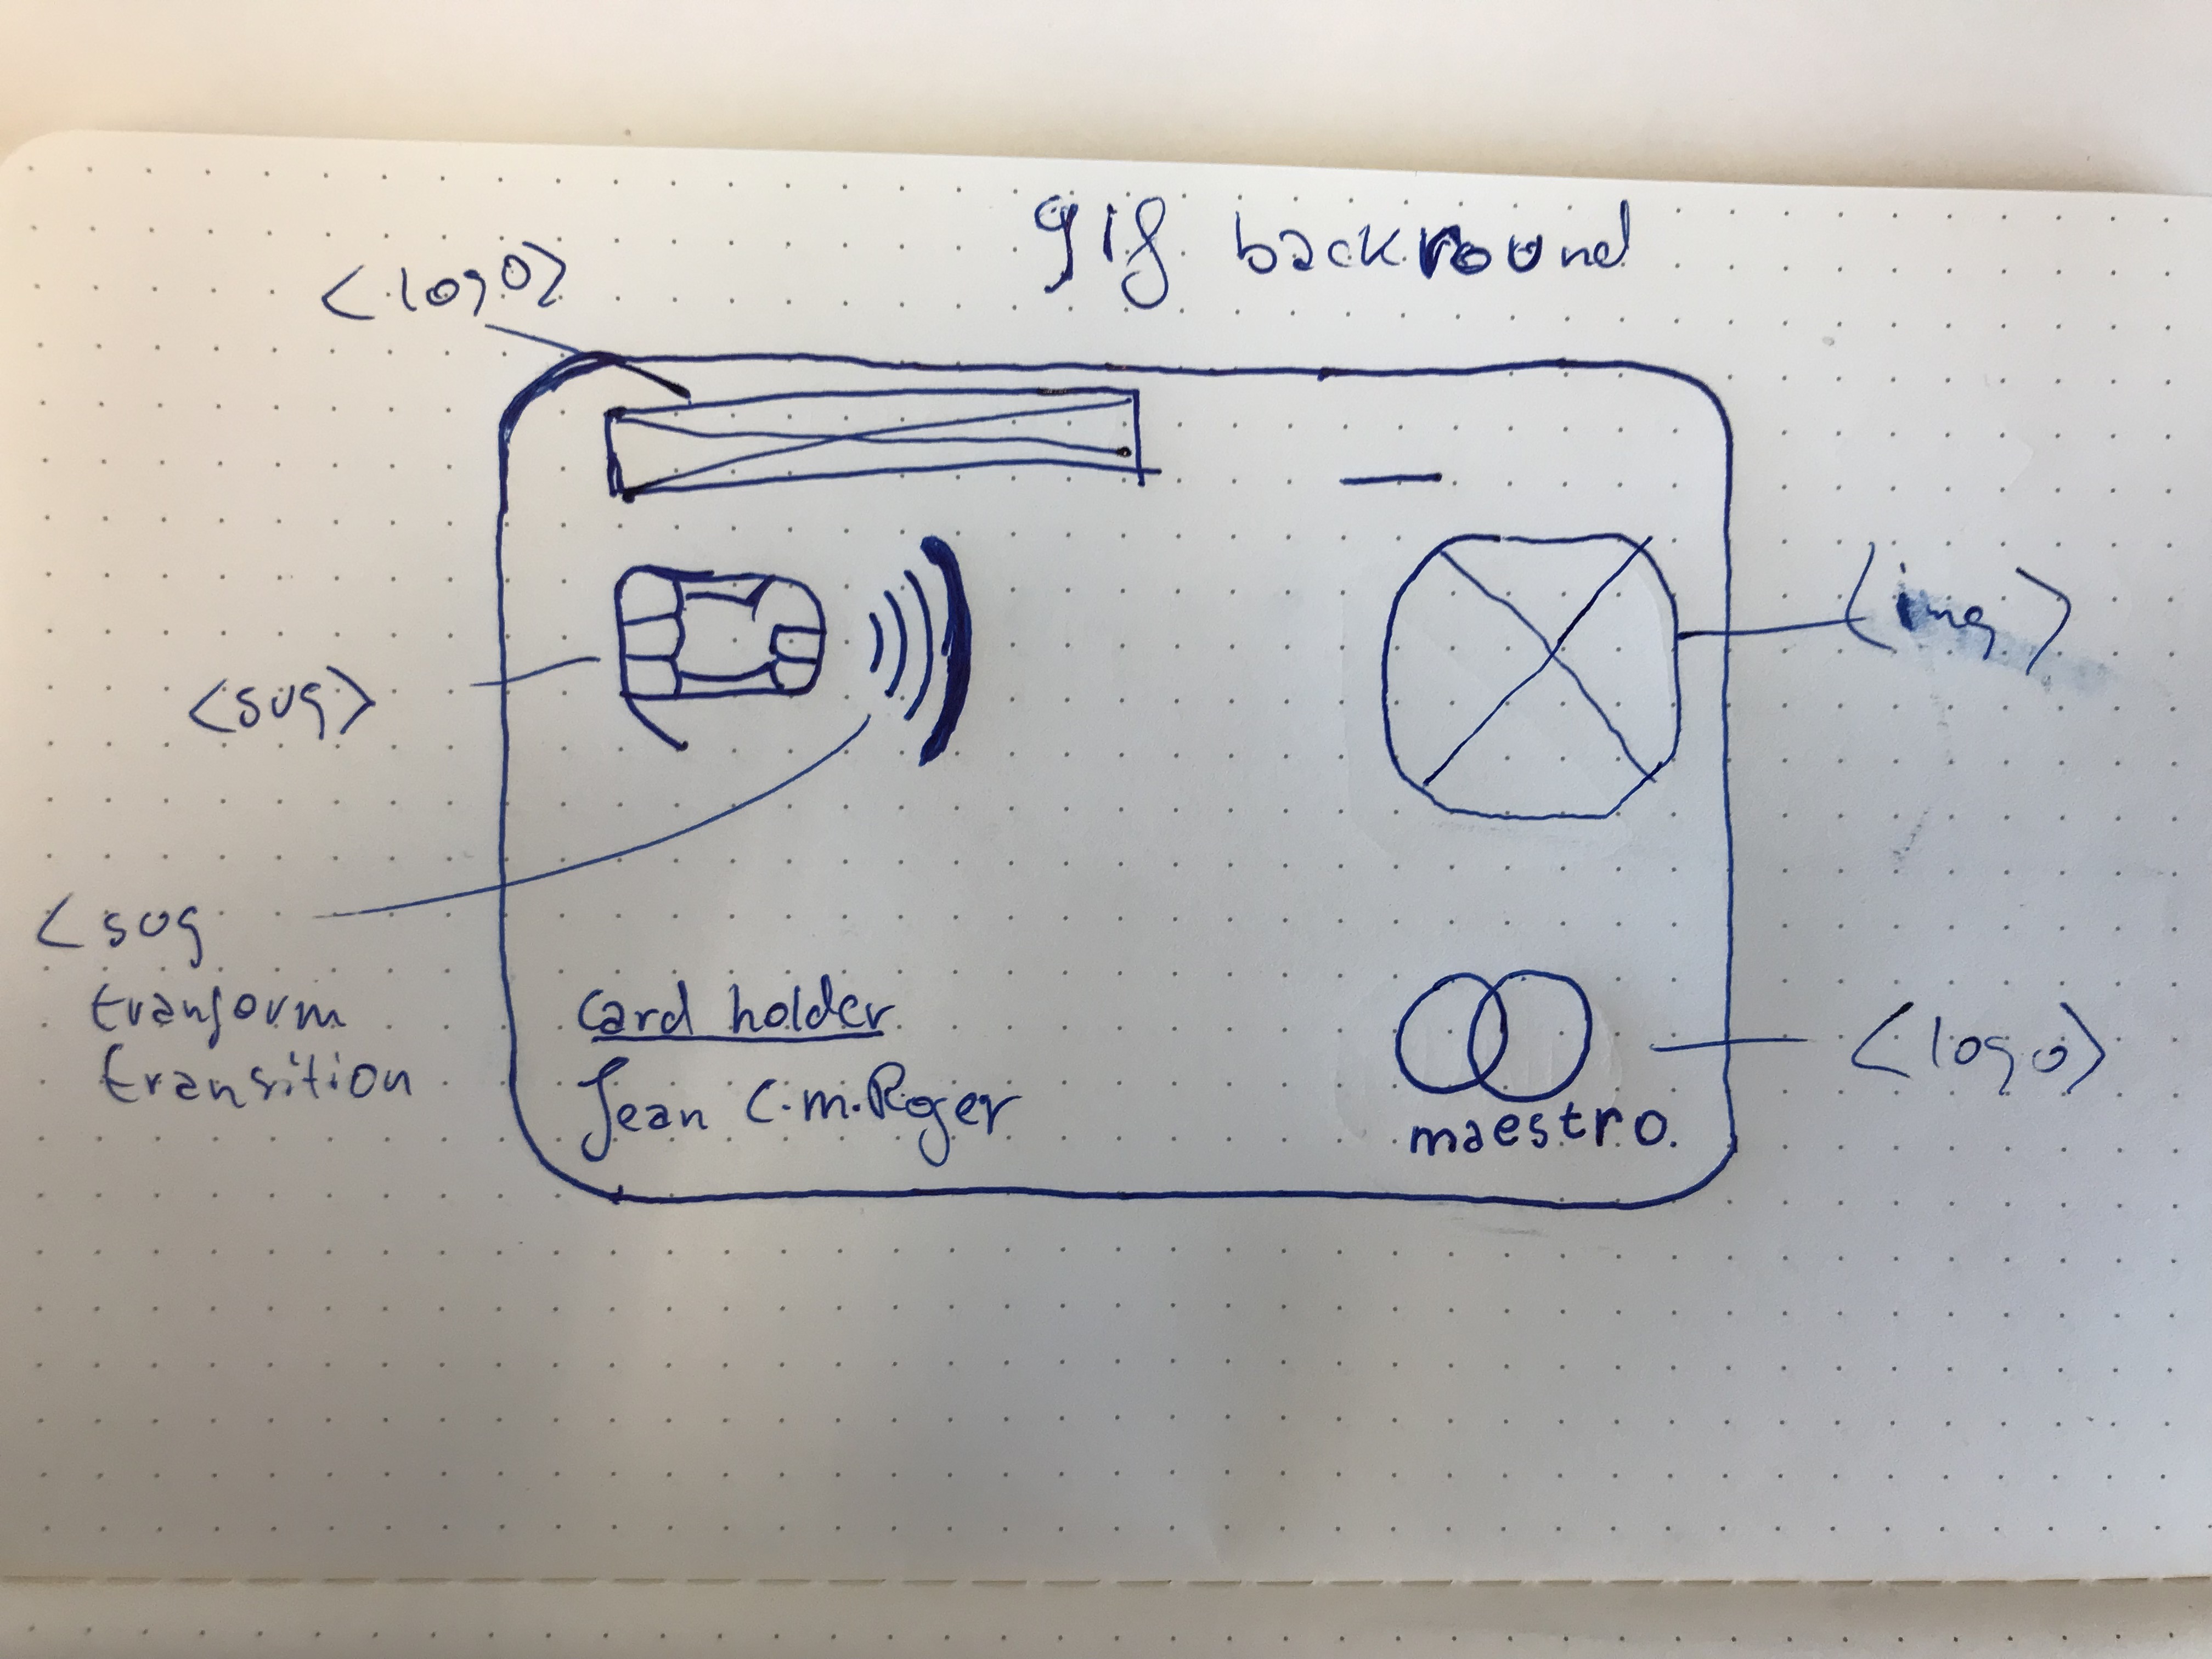 gif backround
<logo>
<svg>
<svg
tranform
transition
Card holder
Jean C.m.Roger
maestro
<img>
<logo>